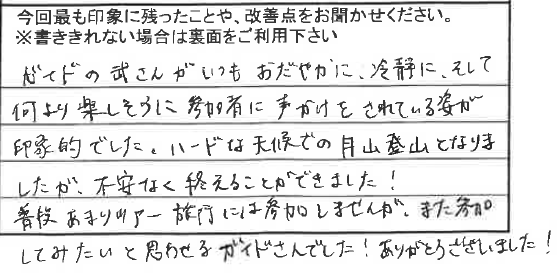 今回最も印象に残ったことや、改善点をお聞かせください。
※書ききれない場合は裏面をご利用下さい
ガイドの武さんがいつもおだやかに、冷静に、そして
何より楽しそうに参加者に声かけをされている姿が
印象的でした。ハードな天候での月山登山となりま
したが、不安なく終えることができました!
普段あまりツアー旅行には参加しませんが、また参加
してみたいと思わせるガイドさんでした!ありがとうございました!